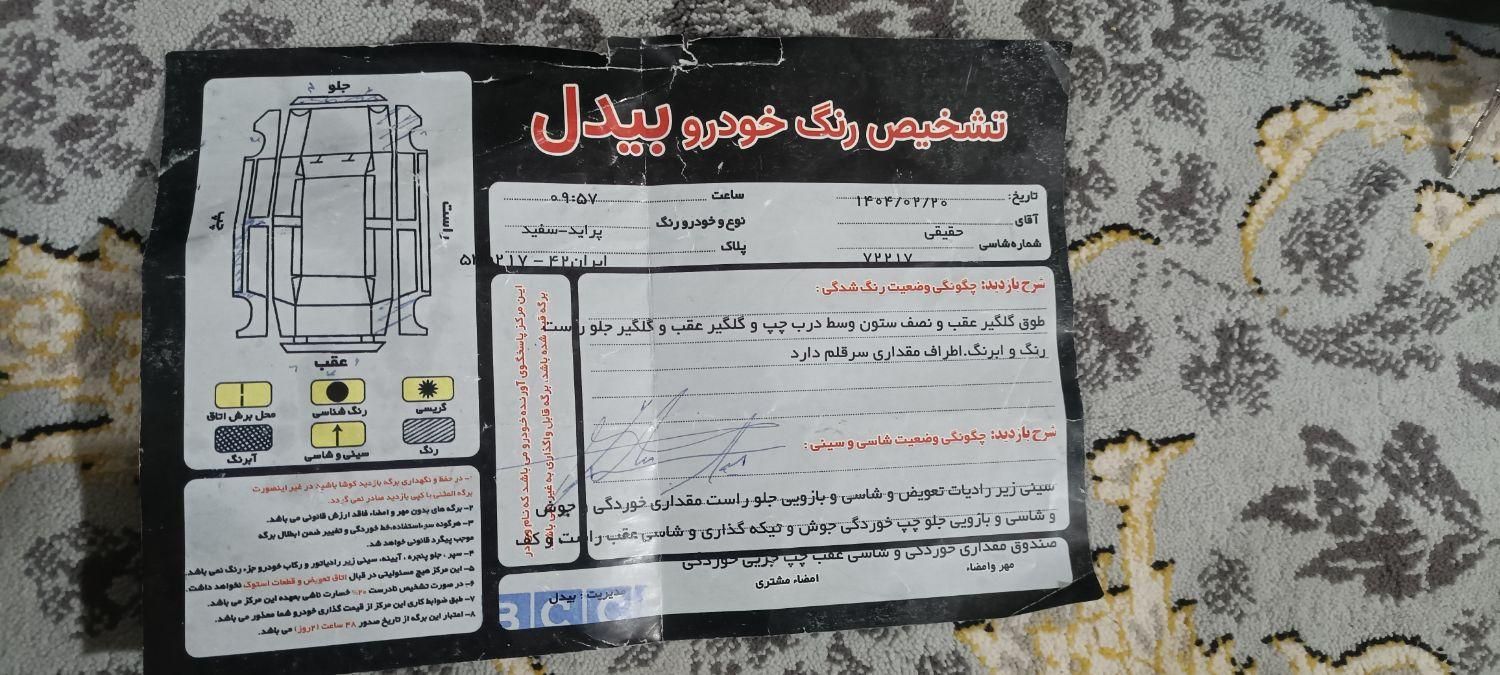 تشخیص رنگ خودرو بیدل
تاریخ: ۱۴۰۴/۰۲/۲۰
ساعت ۰۹:۵۷
آقای حقیقی
نوع و خودرو رنگ پراید-سفید
شماره شاسی ۷۲۲۱۷
پلاک ایران۴۲ - ۲۱۷
شرح بازدید: چگونگی وضعیت رنگ شدگی :
طوق گلگیر عقب و نصف ستون وسط درب چپ و گلگیر عقب و گلگیر جلو راست
رنگ و ابرنگ.اطراف مقداری سرقلم دارد
شرح بازدید: چگونگی وضعیت شاسی و سینی :
سینی زیر رادیات تعویض و شاسی و بازویی جلو راست مقداری خوردگی و جوش
و شاسی و بازویی جلو چپ خوردگی جوش و تیکه گذاری و شاسی عقب راست و کف
صندوق مقداری خوردگی و شاسی عقب چپ جزیی خوردگی
مهر وامضاء
امضاء مشتری
مدیریت: بیدل
BCC
این مرکز پاسخگوی آورنده خودرو می باشد که نام وی در
برگه قید شده باشد، برگه قابل واگذاری به غیر نمی باشد
جلو
راست
چپ
عقب
گریسی
رنگ شناسی
محل برش اتاق
رنگ
سینی و شاسی
آبرنگ
۱- در حفظ و نگهداری برگه بازدید کوشا باشید در غیر اینصورت
برگه المثنی یا کپی بازدید صادر نمی گردد.
۲- برگه های بدون مهر و امضاء فاقد ارزش قانونی می باشد.
۳- هرگونه سوءاستفاده،خط خوردگی و تغییر ضمن ابطال برگه
موجب پیگرد قانونی خواهد شد.
۴- سپر ، جلو پنجره ، آیینه، سینی زیر رادیاتور و رکاب خودرو جزء رنگ نمی باشد.
۵- این مرکز هیچ مسئولیتی در قبال اتاق تعویض و قطعات استوک نخواهد داشت.
۶- در صورت تشخیص نادرست ۲۰% خسارت ناشی بعهده این مرکز می باشد.
۷- طبق ضوابط کاری این مرکز از قیمت گذاری خودرو شما معذور می باشد.
۸- اعتبار این برگه از تاریخ صدور ۴۸ ساعت (۲روز) می باشد.